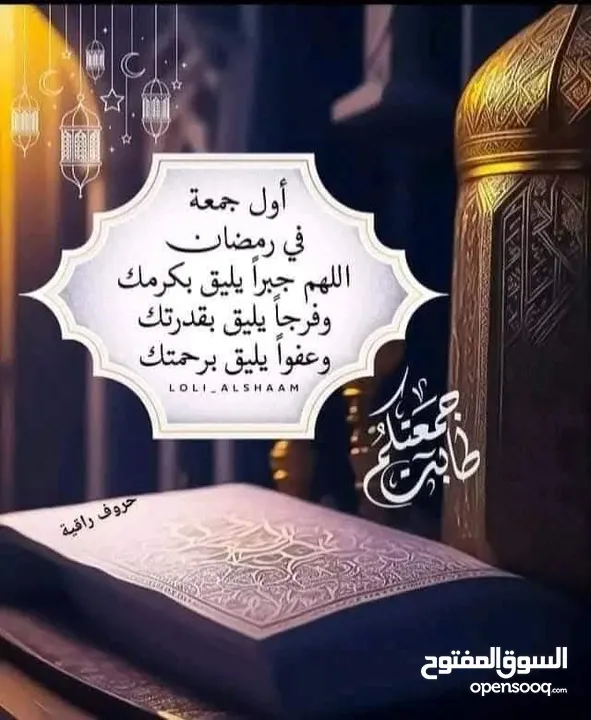 أول جمعة
في رمضان
اللهم جبراً يليق بكرمك
وفرجاً يليق بقدرتك
وعفواً يليق برحمتك
LOLI_ALSHAAM
طابت
جمعتكم
حروف راقية
السوق المفتوح
opensooq.com